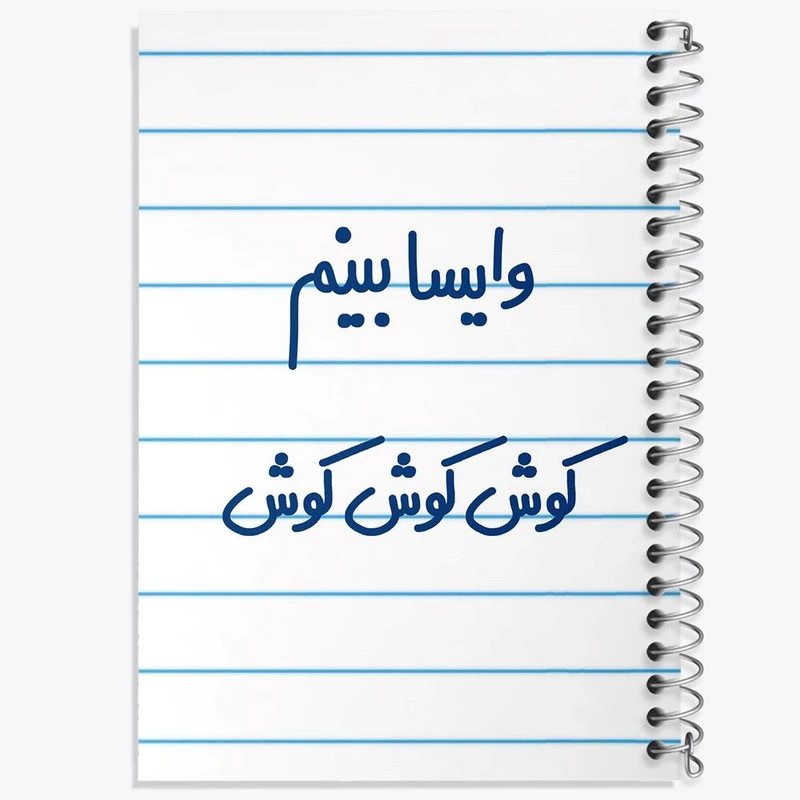 وایسا بینم
کوش کوش کوش